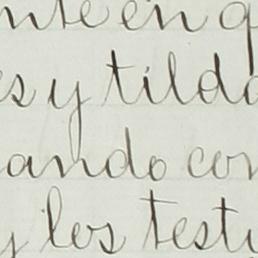 nte en q
s y tilda
ando con
y los testi